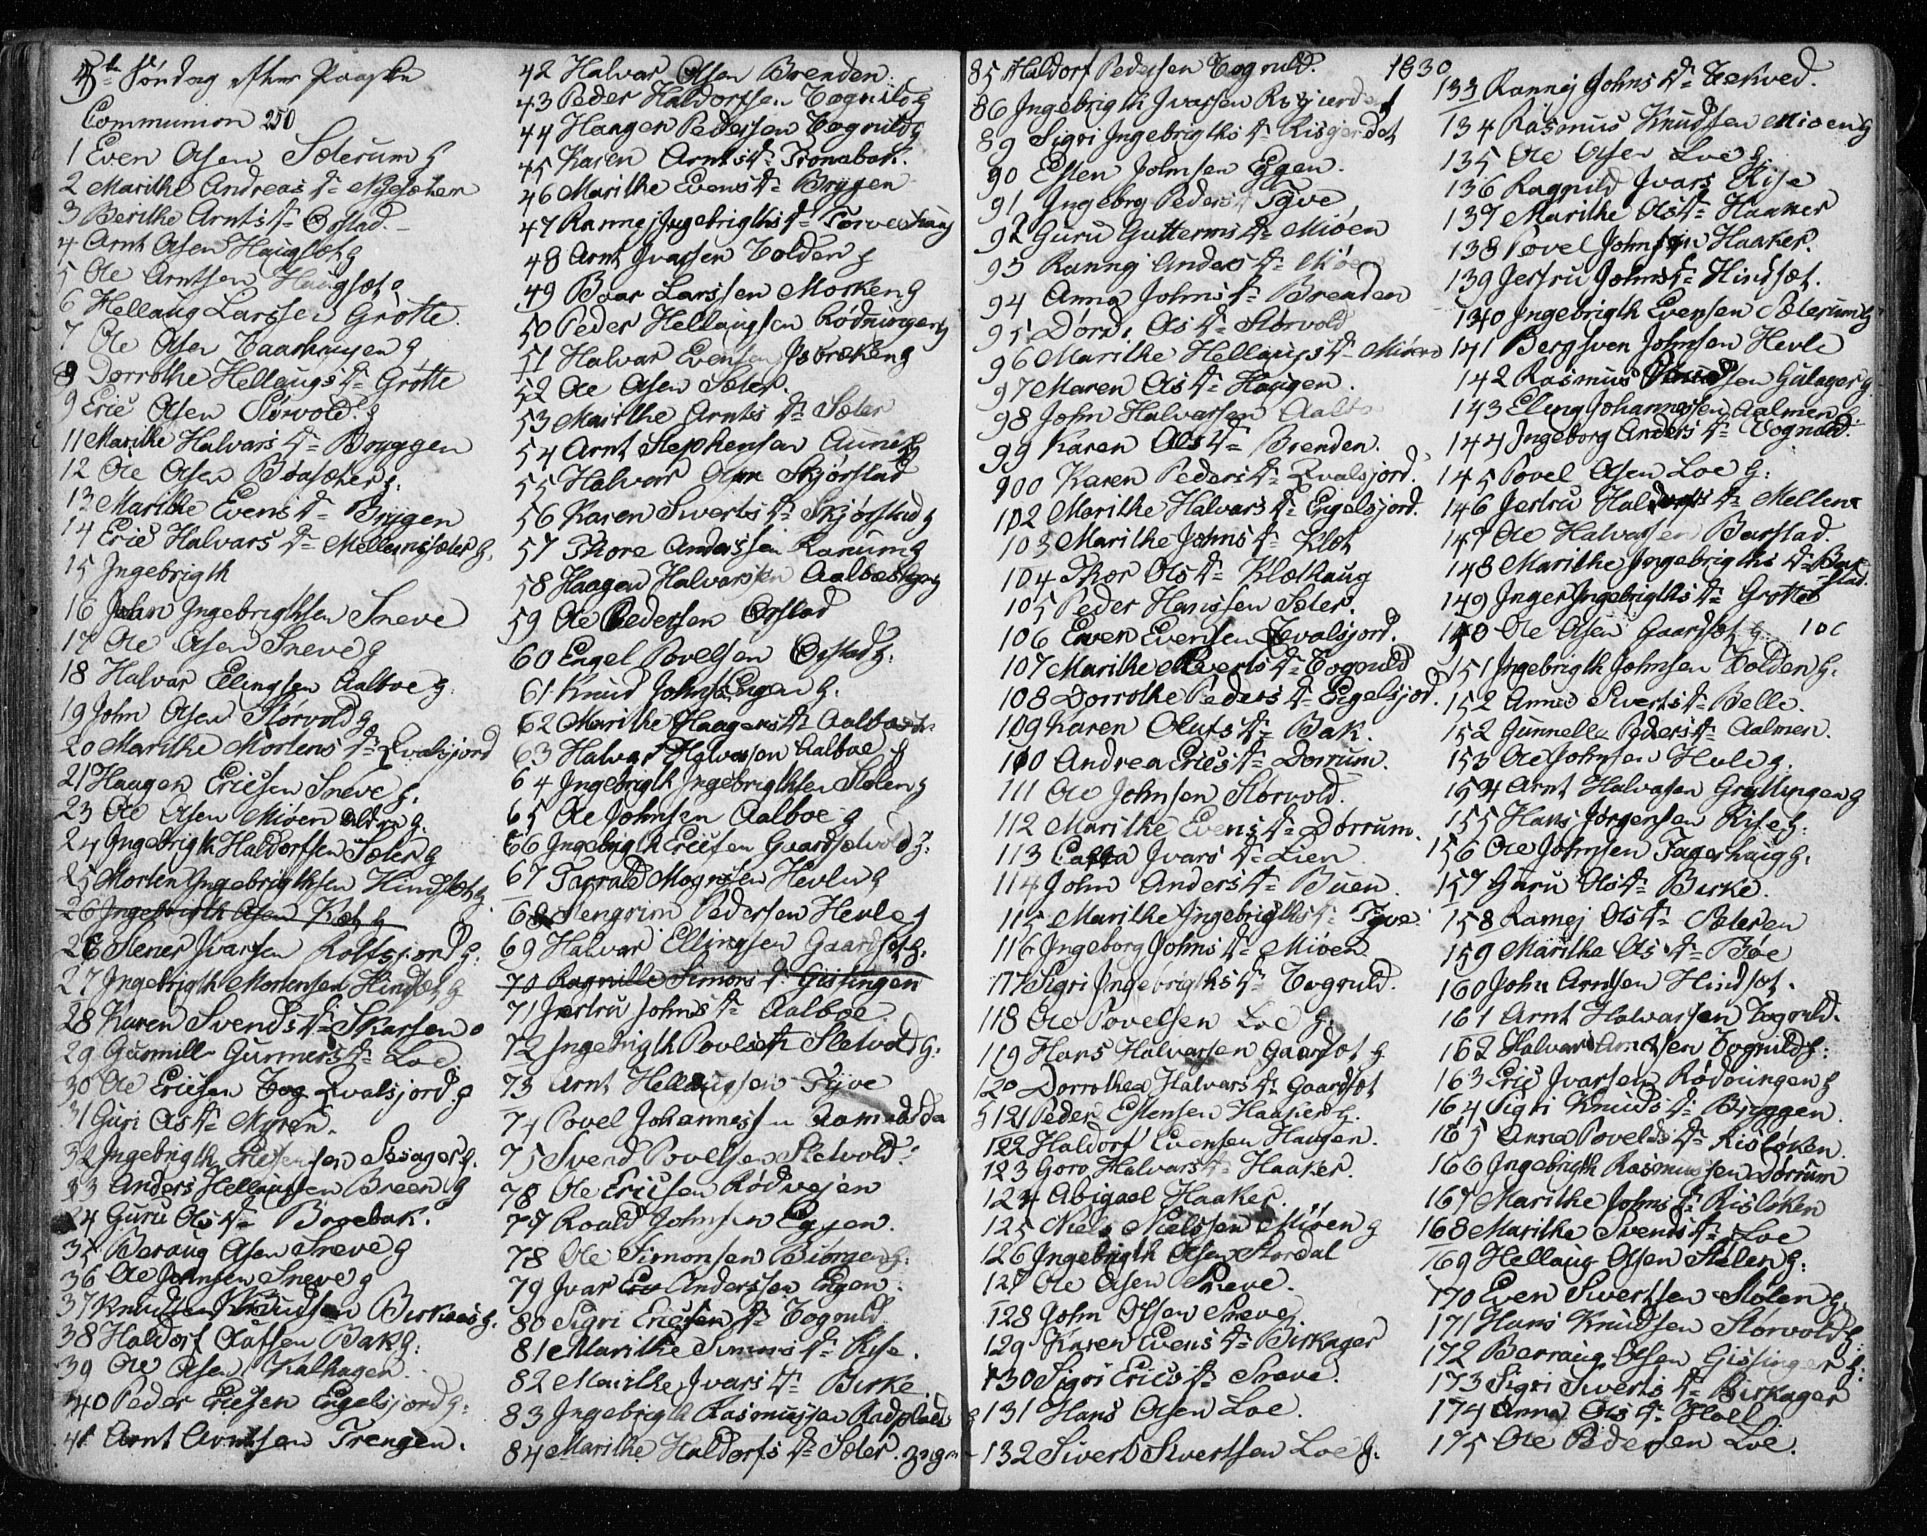 5te Søndag efter Paaske
Communion 250
1 Even Olsen Sæterum g
2 Marithe Andreas Dr Nysæteren
3 Berithe Arnts Dr Orstad.
4 Arnt Olsen Haugsæt g
5 Ole Arntsen Haugsæt g
6 Hellaug Larssen Grøtte.
7 Ole Olsen Taarhaugen g
8 Dorrothe Hellaugs Dr Grøtte
9 Eric Olsen Størvold g
11 Marithe Halvars Dr Bryggen
12 Ole Olsen Bøesæther g.
13 Marithe Evens Dr Brygen
14 Eric Halvars Dr Mellemsæter g.
15 Ingebrigth
16 John Ingebrigthsen Sneve
17 Ole Olsen Sneve g
18 Halvar Ellingsen Aalboe g.
19 John Olsen Størvold g
20 Marithe Mortens Dr Qvalsjord
21 Haagen Ericsen Sneve g.
23 Ole Olsen Miøen g.
24 Ingebrigth Haldorfsen Sæter g
25 Morten Ingebrigthsen Hindsæt g.
26 Ingebrigth Olsen Kæt g
26 Stener Jvarsen Roltsjord g.
27 Ingebrigth Mortensen Hindsæt g
28 Karen Svends Dr Skarsem
29 Gunnill Gunners Dr Loe
30 Ole Ericsen Tog Qvalsjord g
31 Guri Ols Dr Myren.
32 Ingebrigth Ericsen Sæsager g.
33 Anders Hellaugsen Breen g
34 Guru Ols Dr Borebak.
35 Beraug Olsen Sneve g
36 Ole Johnsen Sneve g
37 Knudsen Knudsen Birkaas g.
38 Haldorf Olufsen Bak g.
39 Ole Olsen Kalhagen.
40 Peder Ericsen Engelsjord g.
41 Arnt Arntsen Trengen.
42 Halvar Olsen Brenden.
43 Peder Haldorfsen Togruld g
44 Haagen Pedersen Togruld g
45 Karen Arnts Dr Tronabak.
46 Marithe Evens Dr Brygen
47 Rannej Ingebrigths Dr Torveshaug
48 Arnt Jvarsen Tolden g
49 Baar Larssen Morken g
50 Peder Hellaugsen Rødningen g
51 Halvar Evensen Isbrekken g
52 Ole Olsen Sæter.
53 Marithe Arnts Dr Sæter
54 Arnt Stephensen Aune g
55 Halvar Olsen Skjørstad
56 Karen Siverts Dr Skjørstad g
57 Thore Anderssen Ranum g
58 Haagen Halvarsen Aalboes
59 Ole Pedersen Orstad
60 Engel Povelsen Orstad g.
61 Knud Johnsen Engen g.
62 Marithe Haagens Dr Aalboe
63 Halvar Halvarsen Aalboe g
64 Ingebrigth Ingebrigthsen Stølen g
65 Ole Johnsen Aalboe g
66 Ingebrigth Ericsen Gvardsetvold g.
67 Tarrald Mognsen Hevle g
68 Stengrim Pedersen Hevle g
69 Halvar Ellingsen Gaardsæt g.
70 Ragnille Simons Dr Gislingen
71 Jertru Johns Dr Aalboe
72 Ingebrigth Povelsen Sletvold g.
73 Arnt Hellaugsen Tyve
74 Povel Johannessen
75 Svend Povelsen Sletvold.
78 Ole Ericsen Rødvejen
77 Roald Johnsen Eggen.
78 Ole Simonsen Biørgen g.
79 Jvar Anderssen Engen.
80 Sigri Ericsen Dr Togruld
81 Marithe Simons Dr Rise.
82 Marithe Jvars Dr Birke.
83 Ingebrigth Rasmussen
84 Marithe Haldorfs Dr Sæter.
85 Haldorf Pedersen Togruld.
86 Ingebrigth Jvarssen Risgierdet
89 Sigri Ingebrigths Dr Risgierdet
90 Esten Johnsen Eggen.
91 Ingeborg Peders Tyve
92 Guru Guttorms Dr Miøen
93 Rannej Anders Dr Miøen
94 Anna Johns Dr Brenden
95 Dørdi Ols Dr Størvold
96 Marithe Hellaugs Dr Miøen
97 Maren Ols Dr Haugen.
98 John Halvarssen Aalbo
99 Karen Ols Dr Brenden.
100 Karen Peders Dr Qvalsjord.
102 Marithe Halvars Dr Engelsjord.
103 Marithe Johns Dr Klæt
104 Thor Ols Dr Klækhaug
105 Peder Hanssen Sæter.
106 Even Evensen Qvalsjord.
107 Marithe Siverts Dr Togruld
108 Dorrothe Peders Dr Engelsjord.
109 Karen Olufs Dr Bak.
110 Andrea Erics Dr Dorrum.
111 Ole Johnsen Størvold.
112 Marithe Evens Dr Dorrum.
113 Jvars Dr Lien
114 John Anders Dr Buen.
115 Marithe Ingebrigths Dr Tyve
116 Ingeborg Johns Dr Miøen
117 Sigri Ingebrigths Dr Togruld.
118 Ole Povelsen Loe g.
119 Hans Halvarsen Gaardsæt g
120 Dorrothea Halvars Dr Gaardsæt
121 Peder Estensen Haaker g.
122 Haldorf Evensen Haugen.
123 Goro Halvars Dr Haaker.
124 Abigael Haaker.
125 Niels Nielssen Miøen g
126 Ingebrigth Olsen Stordal
127 Ole Olsen Sneve.
128 John Olsen Sneve.
129 Karen Evens Dr Birkager
130 Sigri Erics Dr Sneve.
131 Hans Olsen Loe.
132 Sivert Sivertsen Loe g.
1830
133 Rannej Johns Dr Tekved.
134 Rasmus Knudsen Miøen g
135 Ole Olsen Loe g.
136 Ragnild Jvars Rise
137 Marithe Ols Dr Haaker
138 Povel Johnsen Haaker.
139 Jertru Johns Dr Hindsæt.
140 Ingebrigth Evensen Sæterum g
141 Bergsven Johnsen Hevle
142 Rasmus Gulager g.
143 Eling Johannessen Aalmen g.
144 Ingeborg Anders Dr Togruld.
145 Povel Olsen Loe g.
146 Jertru Haldorfs Dr Mellem
147 Ole Halvarsen Barstad.
148 Marithe Ingebrigths Dr Bar
stad.
149 Inger Ingebrigths Dr Grøtte
150 Ole Olsen Gaardsæt g. 100
151 Ingebrigth Johnsen Tolden g.
152 Anne Siverts Dr Belle.
152 Gunnelle Peders Dr Aalmen.
153 Ole Johnsen Hevle g.
154 Arnt Halvarsen Gryttingen g
155 Hans Jørgensen Rise g.
156 Ole Johnsen Fagerhaug g.
157 Guru Ols Dr Birke.
158 Rannej Ols Dr Sæteren
159 Marithe Ols Dr Bøe
160 John Arntsen Hindsæt.
161 Arnt Halvarsen Togruld.
162 Halvar Arntsen Togruld g.
163 Eric Jvarsen Rødningen g
164 Sigri Knuds Dr Bryggen.
165 Anna Povels Dr Risløken.
166 Ingebrigth Rasmussen Dorrum
167 Marithe Johns Dr Risløken
168 Marithe Svends Dr Loe
169 Hellaug Olsen Stølen g.
170 Even Sivertsen Stølen g.
171 Hans Knudsen Storvold g.
172 Berraug Olsen Gissinger g.
173 Sigri Siverts Dr Birkager
174 Anna Ols Dr Holl
175 Ole Pedersen Loe.